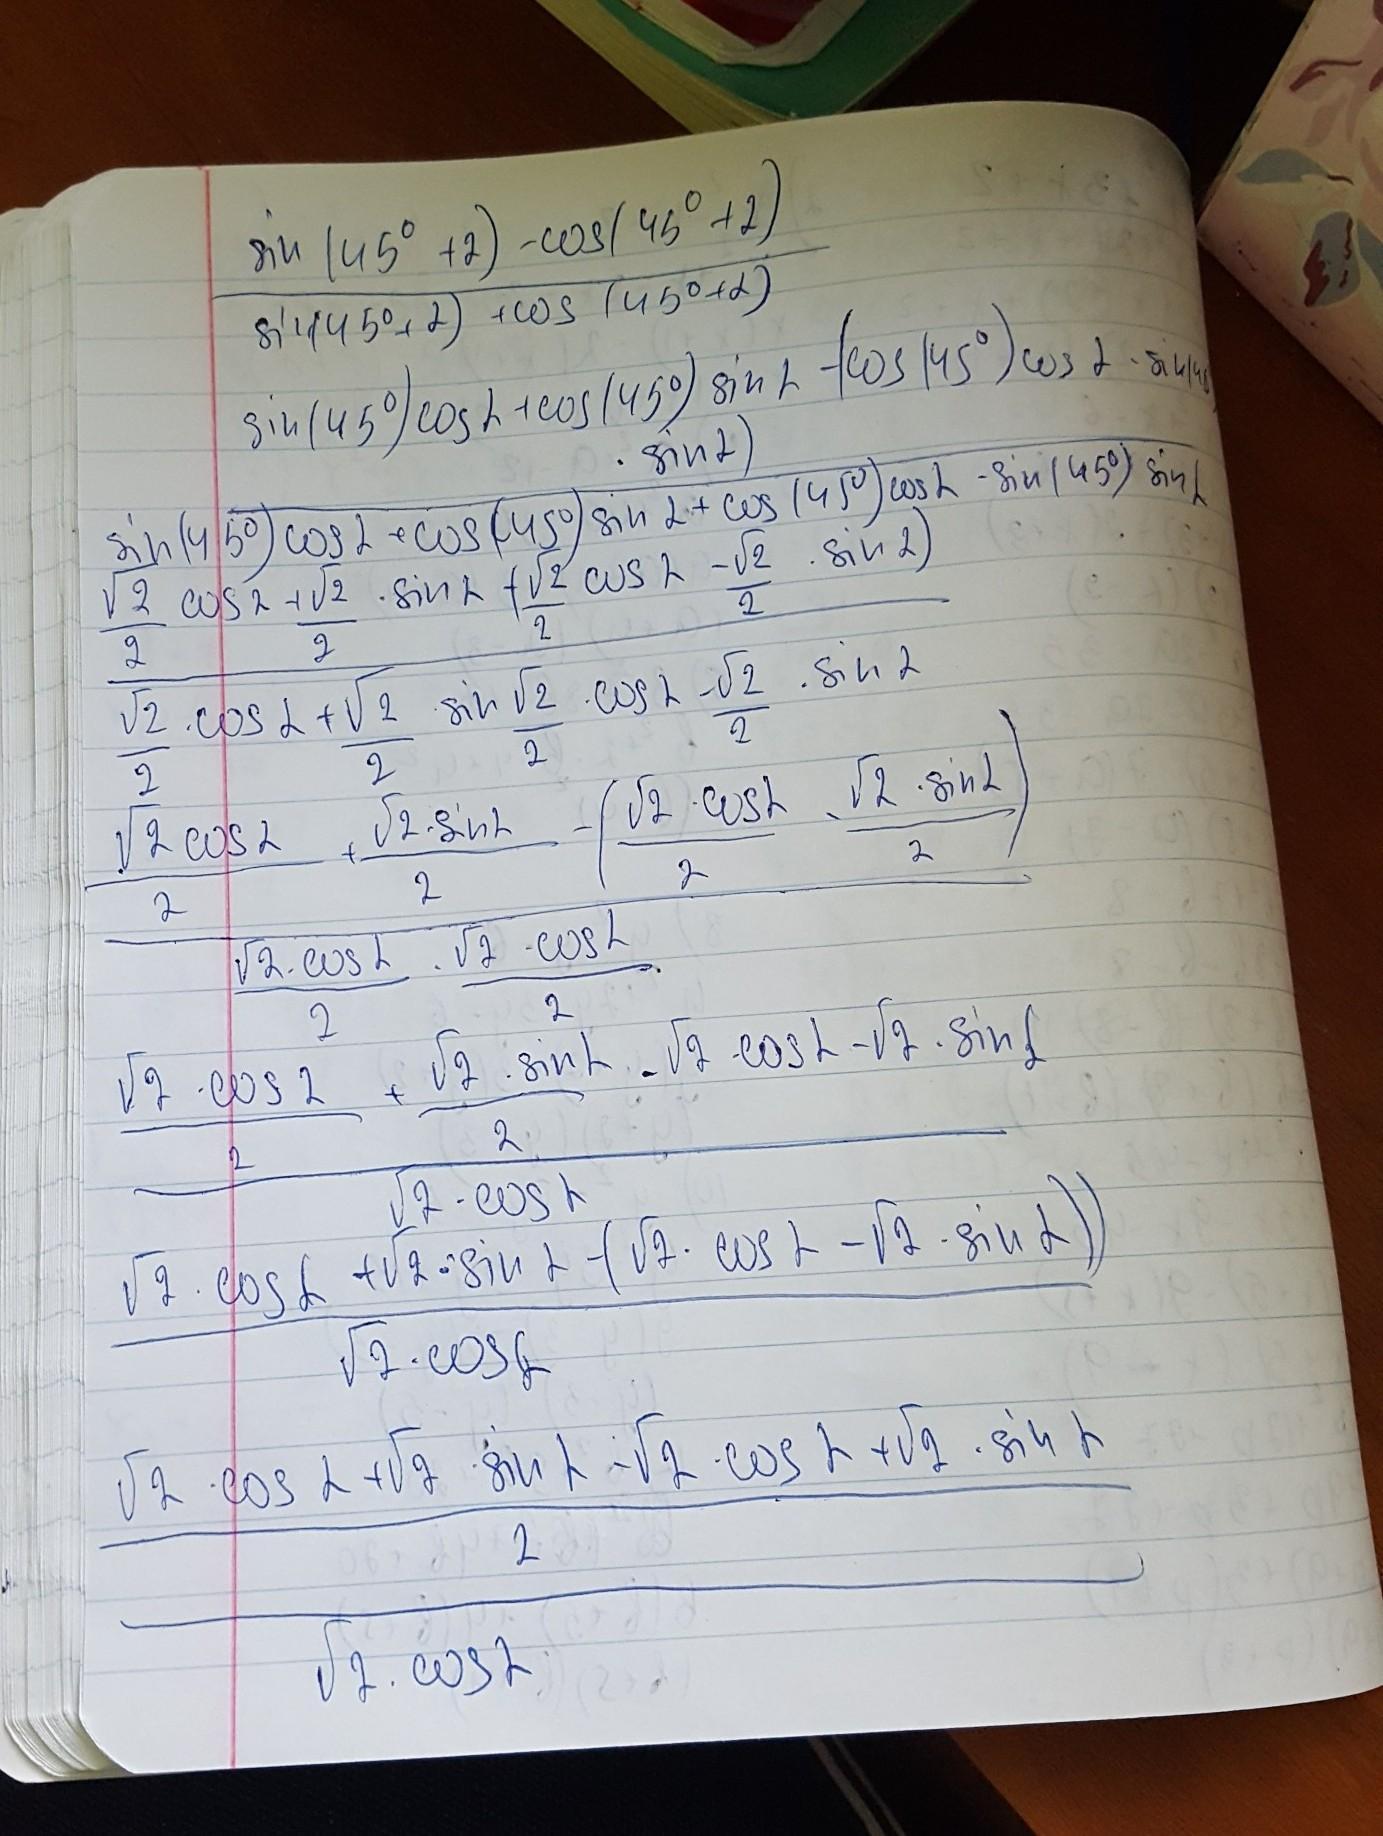 sin (45° + α) - cos (45° + α)
sin (45° + α) + cos (45° + α)
sin (45°) cos α + cos (45°) sin α - (cos (45°) cos α - sin (45
· sin α)
sin (45°) cos α + cos (45°) sin α + cos (45°) cos α - sin (45°) sin α
√2/2 cos α + √2/2 · sin α + (√2/2 cos α - √2/2 · sin α)
√2/2 · cos α + √2/2 · sin √2/2 · cos α - √2/2 · sin α
√2 cos α / 2 + √2 · sin α / 2 - (√2 · cos α / 2 - √2 · sin α / 2)
√2 · cos α / 2 · √2 · cos α / 2
√2 · cos α / 2 + √2 · sin α / 2 - √2 · cos α - √2 · sin α
√2 · cos α
√2 · cos α + √2 · sin α - (√2 · cos α - √2 · sin α))
√2 · cos α
√2 · cos α + √2 · sin α - √2 · cos α + √2 · sin α
2
√2 · cos α